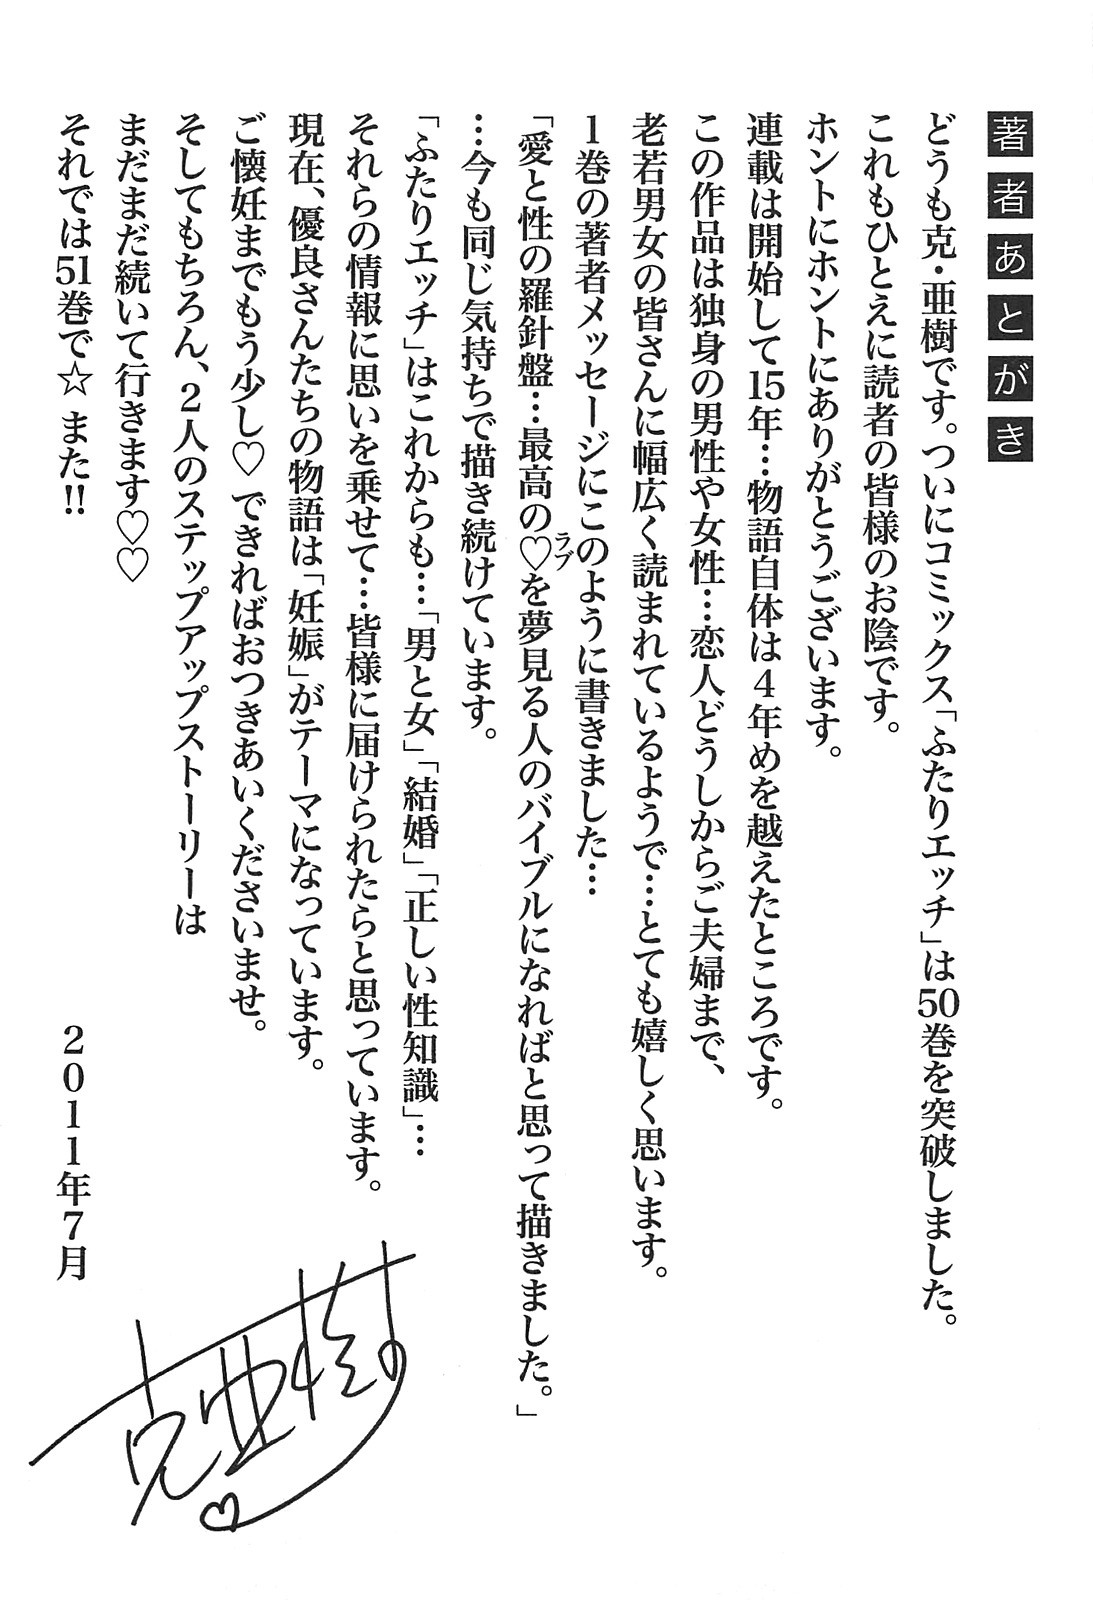 著者あとがき
どうも克・亜樹です。ついにコミックス「ふたりエッチ」は50巻を突破しました。
これもひとえに読者の皆様のお陰です。
ホントにホントにありがとうございます。
連載は開始して15年…物語自体は4年めを越えたところです。
この作品は独身の男性や女性…恋人どうしからご夫婦まで、
老若男女の皆さんに幅広く読まれているようで…とても嬉しく思います。
1巻の著者メッセージにこのように書きました…
「愛と性の羅針盤…最高の♡を夢見る人のバイブルになればと思って描きました。」
ラブ
…今も同じ気持ちで描き続けています。
「ふたりエッチ」はこれからも…「男と女」「結婚」「正しい性知識」…
それらの情報に思いを乗せて…皆様に届けられたらと思っています。
現在、優良さんたちの物語は「妊娠」がテーマになっています。
ご懐妊までもう少し♡ できればおつきあいくださいませ。
そしてもちろん、2人のステップアップストーリーは
まだまだ続いて行きます♡♡
それでは51巻で☆ また!!
2011年7月
克亜樹